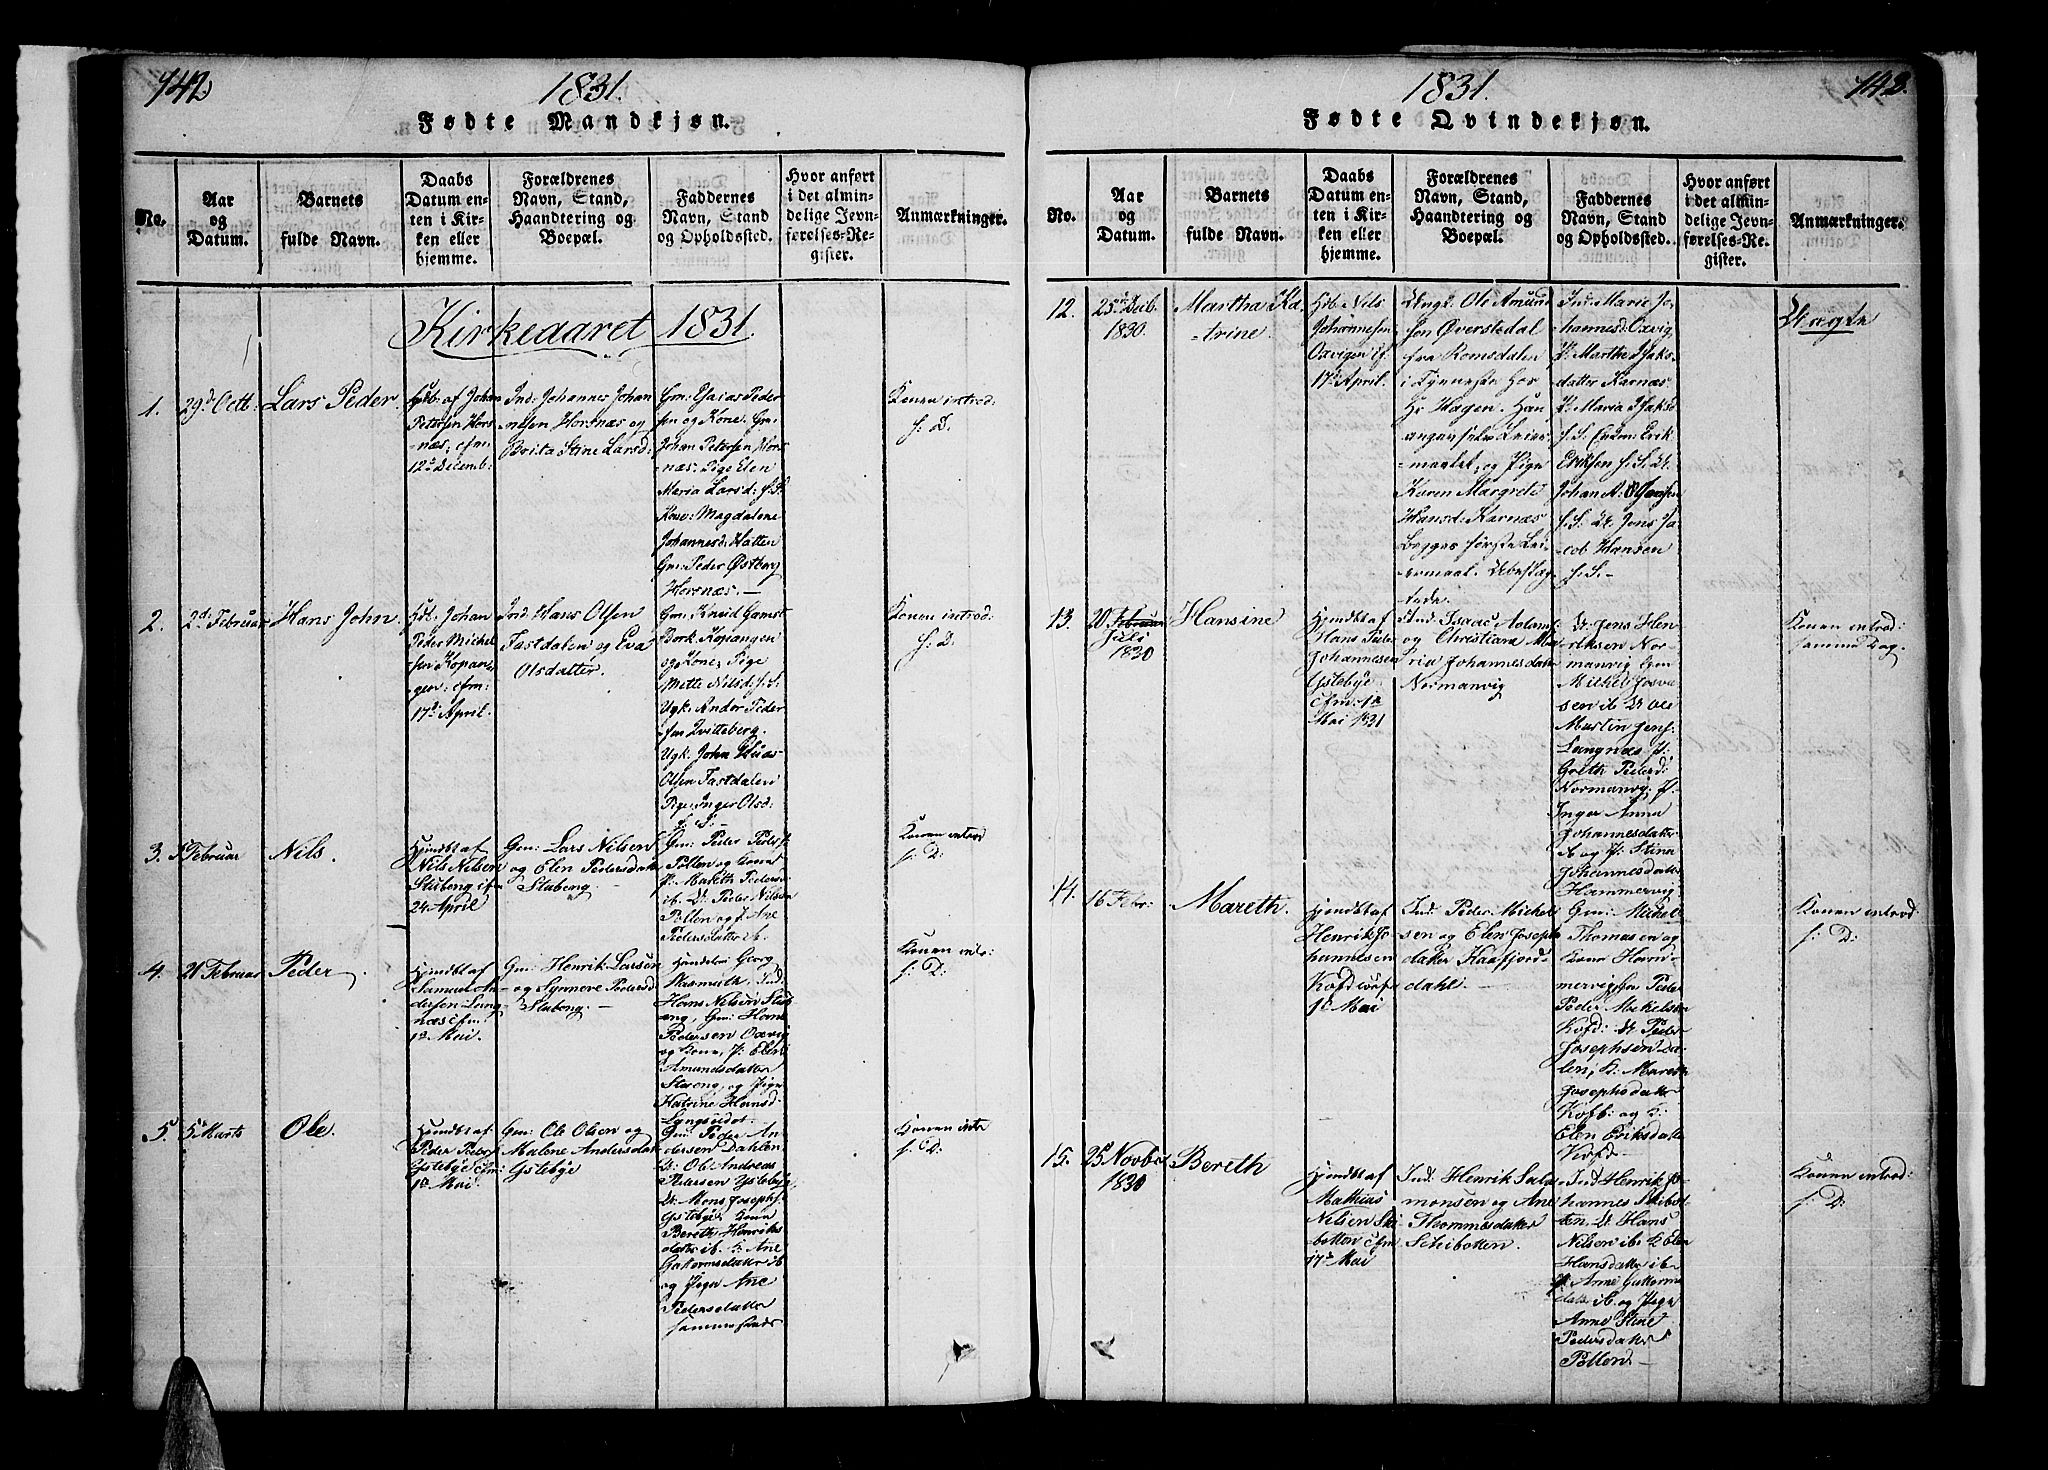 142
1831.
Fødte Mandkjøn.
No.
Aar
og
Datum.
Barnets
fulde Navn.
Daabs
Datum en-
ten i Kir-
ken eller
hjemme.
Forældrenes
Navn, Stand,
Haandtering og
Boepæl.
Faddernes
Navn, Stand
og Opholdssted.
Hvor anført
i det almin-
delige Jevn-
førelses-Re-
gister.
Anmærkninger.
Kirkeaaret 1831.
1.
29d Octb:
Lars Peder
Hdb: af Johan
Petersen Hors-
næs, cfm:
12te Decemb:
Ind: Johannes Johan
nesen Horsnæs og
Brita Stine Larsd:
Gm: Esaias Peder
sen og Kone. Gm:
Johan Petersen Hors
næs. Pige Elen
Maria Larsd: s. S.
Kone: Magdalene
Johannesd: Hatten
Gm: Peder Østberg
Horsnæs.
Konen introd:
s: D.
2.
2d. Februar
Hans John
Hdb: Johan
Peder Michel
sen Kopan-
gen: cfm:
17de April.
Ind: Hans Olsen
Fastdalen og Eva
Olsdatter.
Gm: Knud Gamst
Bork: Kopangen
og Kone, Pige
Mette Nilsd: s. S.
Ugk: Andor Peder
sen Qvitteberg.
Ugk: John
Olsen Fastdalen
Pige: Inger Olsd:
s. S.
Konen introd:
s: D.
3.
5 Februar
Nils.
Hjmdbt af
Nils Nilsen
Stubeng cfm
24 April
Gm: Lars Nilsen
og Elen Pedersdatt
Stubeng.
Gm: Peder Peders
Pollen og Kone
P: Mareth Pedersd
ib. U: Peder Nilsen
Pollen og P. Ane
Pedersdatter ib.
Konen introd
s: D:
4.
21 Februar
Peder
Hjmdbt af
Samuel An-
dersen Lang-
næs cfm:
1ste Mai.
Gm: Henrik Larsen
og Synnøve Pedersd
Stubeng.
Handelsm Georg
Hans Nilsen Stub
eng, Gm: Hans
Pedersen Oxvig
og Kone, P: Elen
Amundsdatter
Stubeng, og Pige
Katrine Hansd
Lyngseidet.
Konen intro:
s: D:
5.
5 Marts
Ole.
Hjmdbt af
Peder Peders
Ystebye cfm:
1ste Mai.
Gm: Ole Olsen og
Malene Andersdatt
Ystebye
Gm: Peder An-
dersen Dahlen
U: Ole Andreas
Petersen Ystebye
U: Mons Josephs
Ystebye Kone
Bereth Henriks
datter ib. K: Ane
Guttormsdatter ib
og Pige Ane
Pedersdatter
sammesteds
Konen intr
s: D:
143.
1831.
Fødte Qvindekjøn.
No.
Aar
og
Datum.
Barnets
fulde Navn.
Daabs
Datum en-
ten i Kir-
ken eller
hjemme.
Forældrenes
Navn, Stand,
Haandtering og
Boepæl.
Faddernes
Navn, Stand
og Opholdssted.
Hvor anført
i det almin-
delige Jevn-
førelses-Re-
gister.
Anmærkninger.
12.
1830.
Martha Ka
trine.
Hdb: Nils
Johannesen
Oxvigen cf.
17de April.
Ungk: Ole Amund
sen Øverstedal
fra Romsdalen
i Tjeneste hos
Hr Hagen. Han
angav selv Leier
maalet, og Pige
Karen Margrete
Hansd: Karnæs
begges første Lei-
ermaal.
Ind: Marie Jo-
hannesd: Oxvig
P: Martha Isaks-
datter Karnæs
P: Maria Isaksd
s. S. Enkem: Erik
Eriksen s. S. U:
Johan A:
s. S. U: Jens Ja-
cob Hansen
s. S.
Uægte
13.
20 Februar
Juli
1830
Hansine
Hjmdbt af
Hans Peter
Johannesen
Ystebye
cfm: 1ste
Mai 1831
Ind: Isaac
og Christiana Ma
ria Johannesdatter
Normanvig
U: Jens Hen
riksen Nor-
manvig Gm
Mikkel Josva
sen ib U: Ole
Martin Jens:
Langnæs P:
Greth Pedersd:
Normanvig P.
Inger Anna
Johannesdatter
ib og P: Stina
Johannesdatter
Hammervig
Konen introd:
samme Dag.
14.
16 Febr:
Mareth.
Hjmdbt af
Henrik Jo-
hannesen
1ste Mai
Ind: Peder Michel
sen og Elen Josephs
datter Kaafjord-
dahl.
Gm: Mickel
Thomasen og
Kone Ham-
mervig, Gm Peder
Peder Mikkelsen
Kofd: U: Peder
Josephsen Da-
len, K: Mareth
Josephsdatter
Kofb: og K:
Elen Eriksdatter
Kofd
Konen introd
s: D:
15.
25 Novbr
1830
Bereth
Hjmdbt af
Mathias
Nilsen Ski-
botten cfm
17de Mai
Ind: Henrik Sala
monsen og Ane
Thommesdatter
Schibotten.
Ind Henrik Jo-
hannes Skibot
ten. U: Hans
Nilsen ib: K: Elen
Hansdatter ib.
P Anne Guttorms
datter ib. og Pige
Anne Stine
Pedersdatter
Pollen
Konen introd:
s: D: